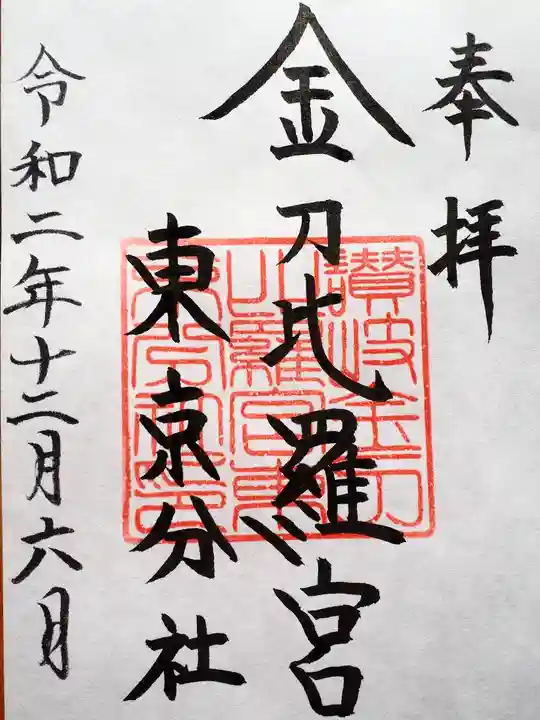 奉拝
金刀比羅宮
東京分社
令和二年十二月六日
讃岐金刀
比羅宮東
京分社印